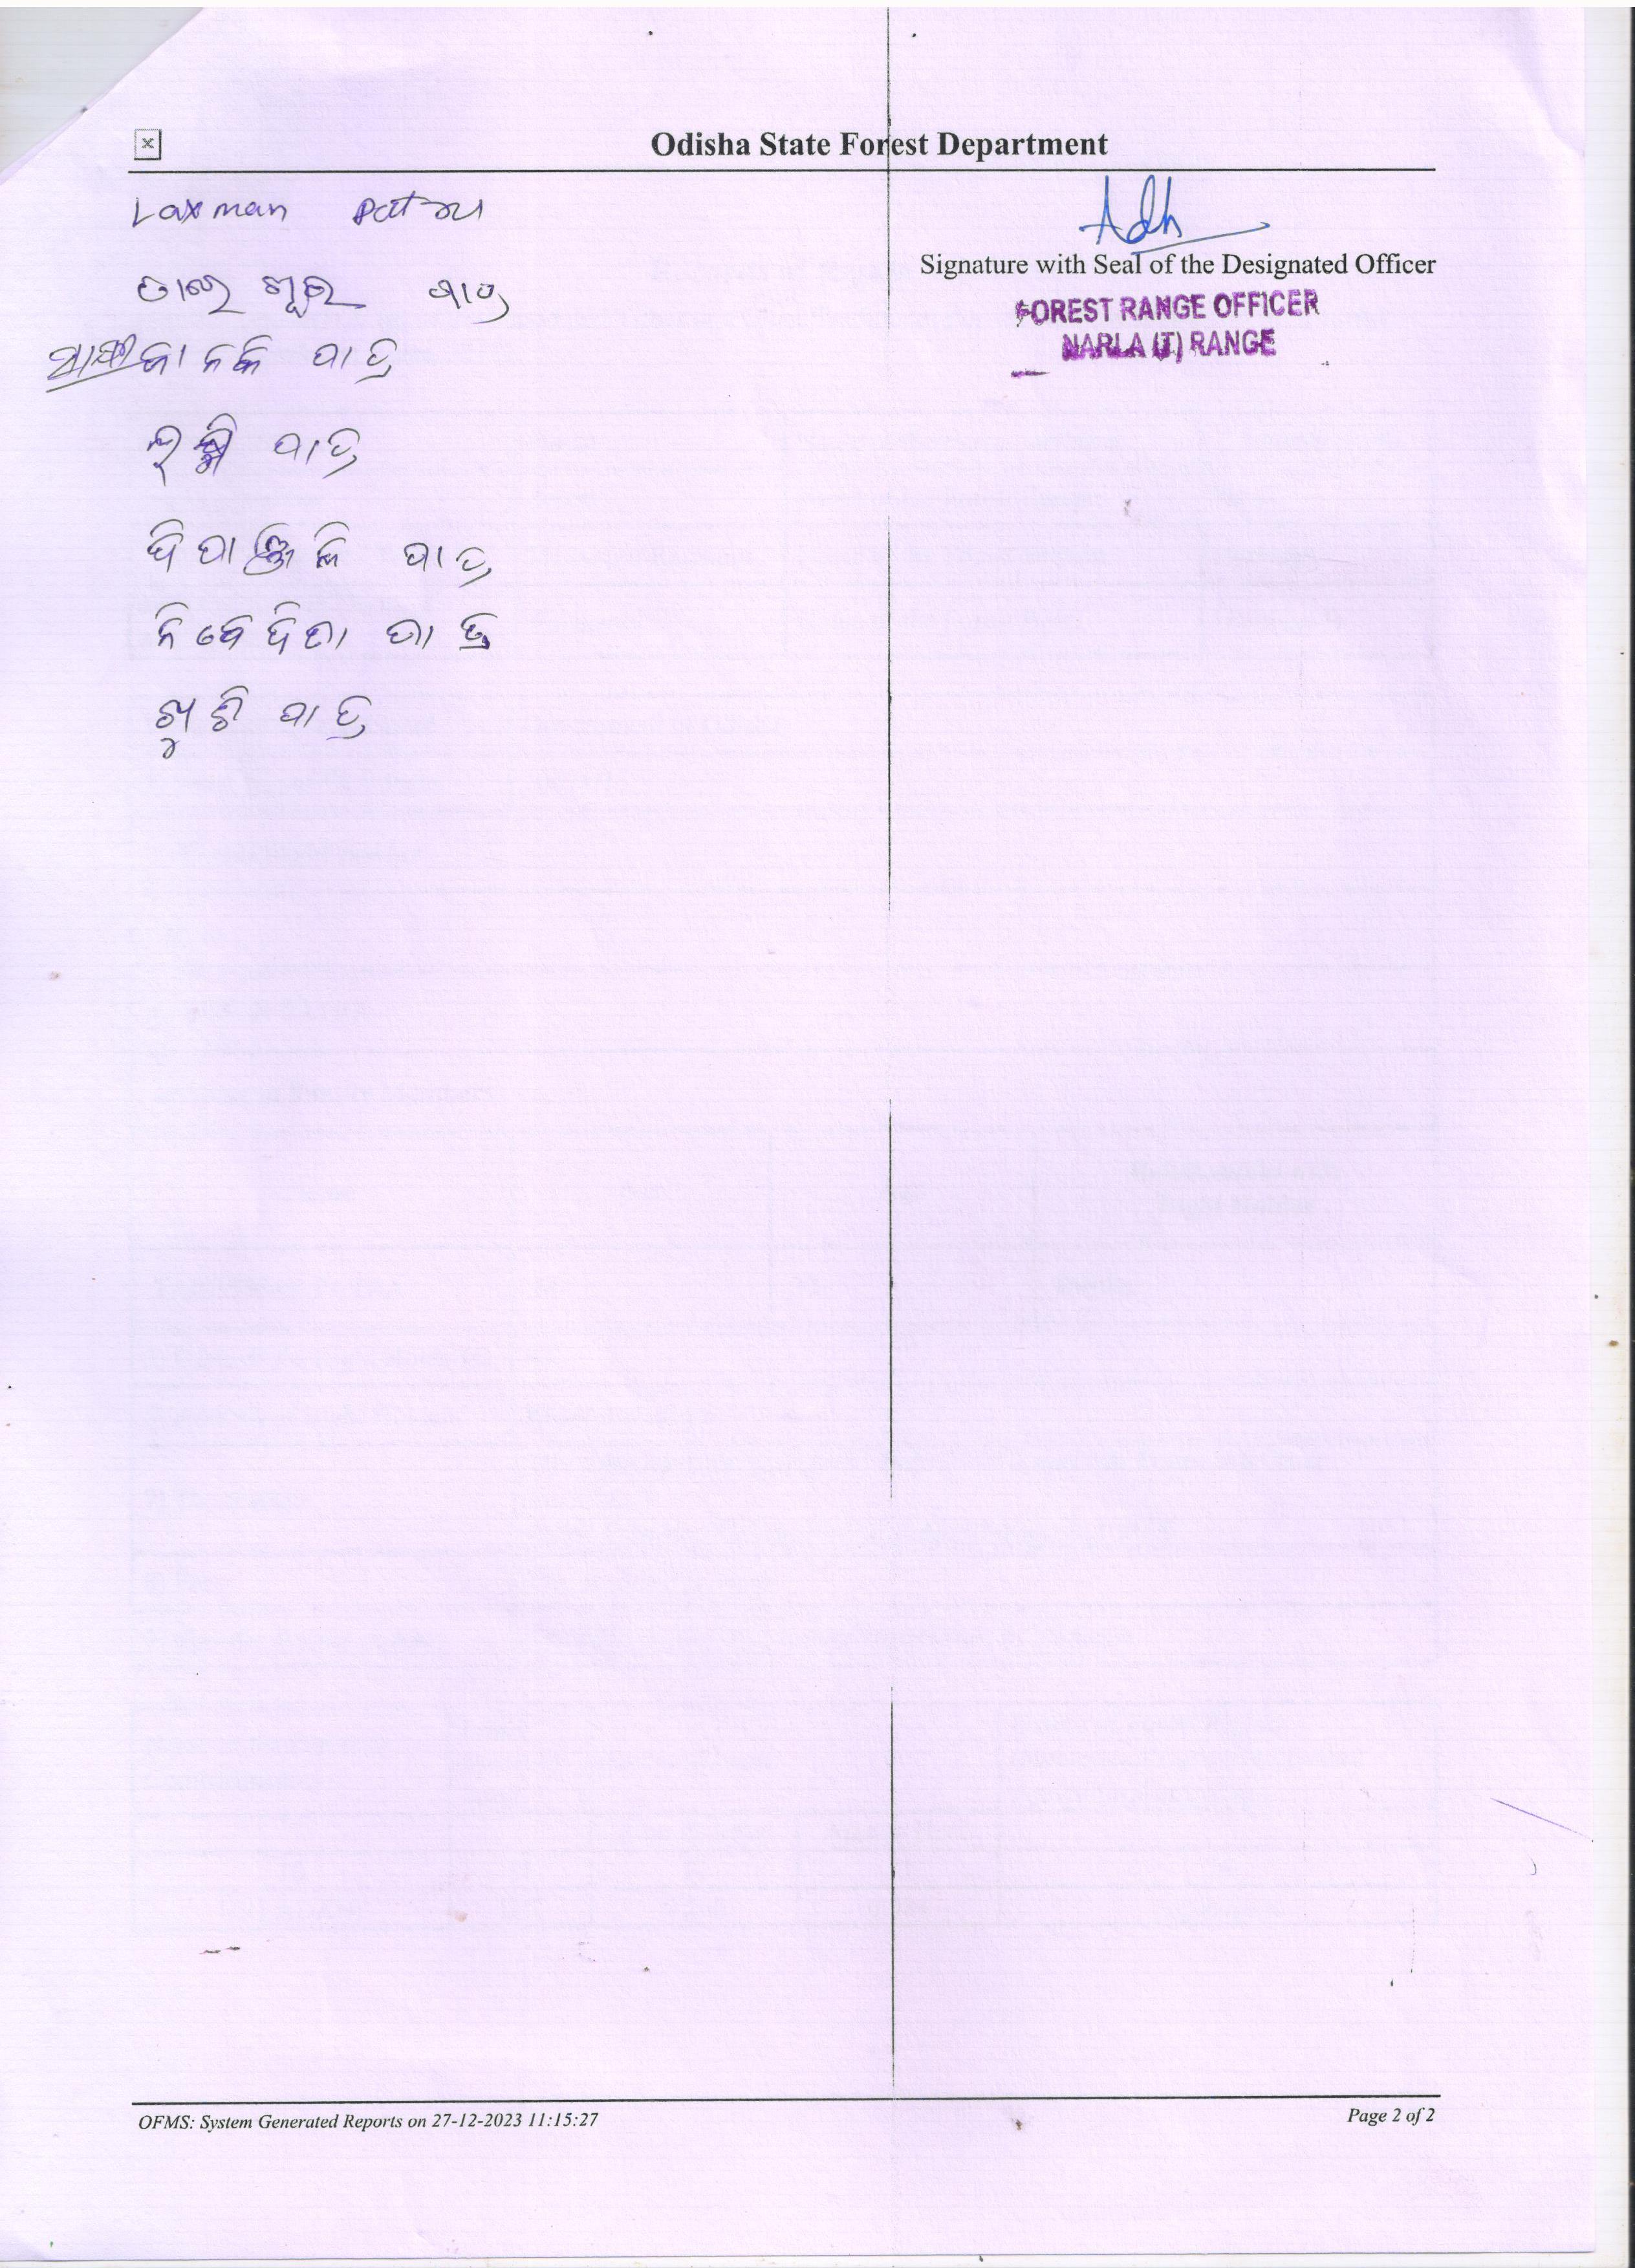 Odisha State Forest Department
Laxman Patra
Signature with Seal of the Designated Officer
FOREST RANGE OFFICER
NARLA (T) RANGE
ପାତ୍ର
ଜାନକି ପାତ୍ର
ପାତ୍ର
ଦିପାଞ୍ଜଳି ପାତ୍ର
ନିବେଦିତା ପାତ୍ର
ପାତ୍ର
OFMS: System Generated Reports on 27-12-2023 11:15:27
Page 2 of 2